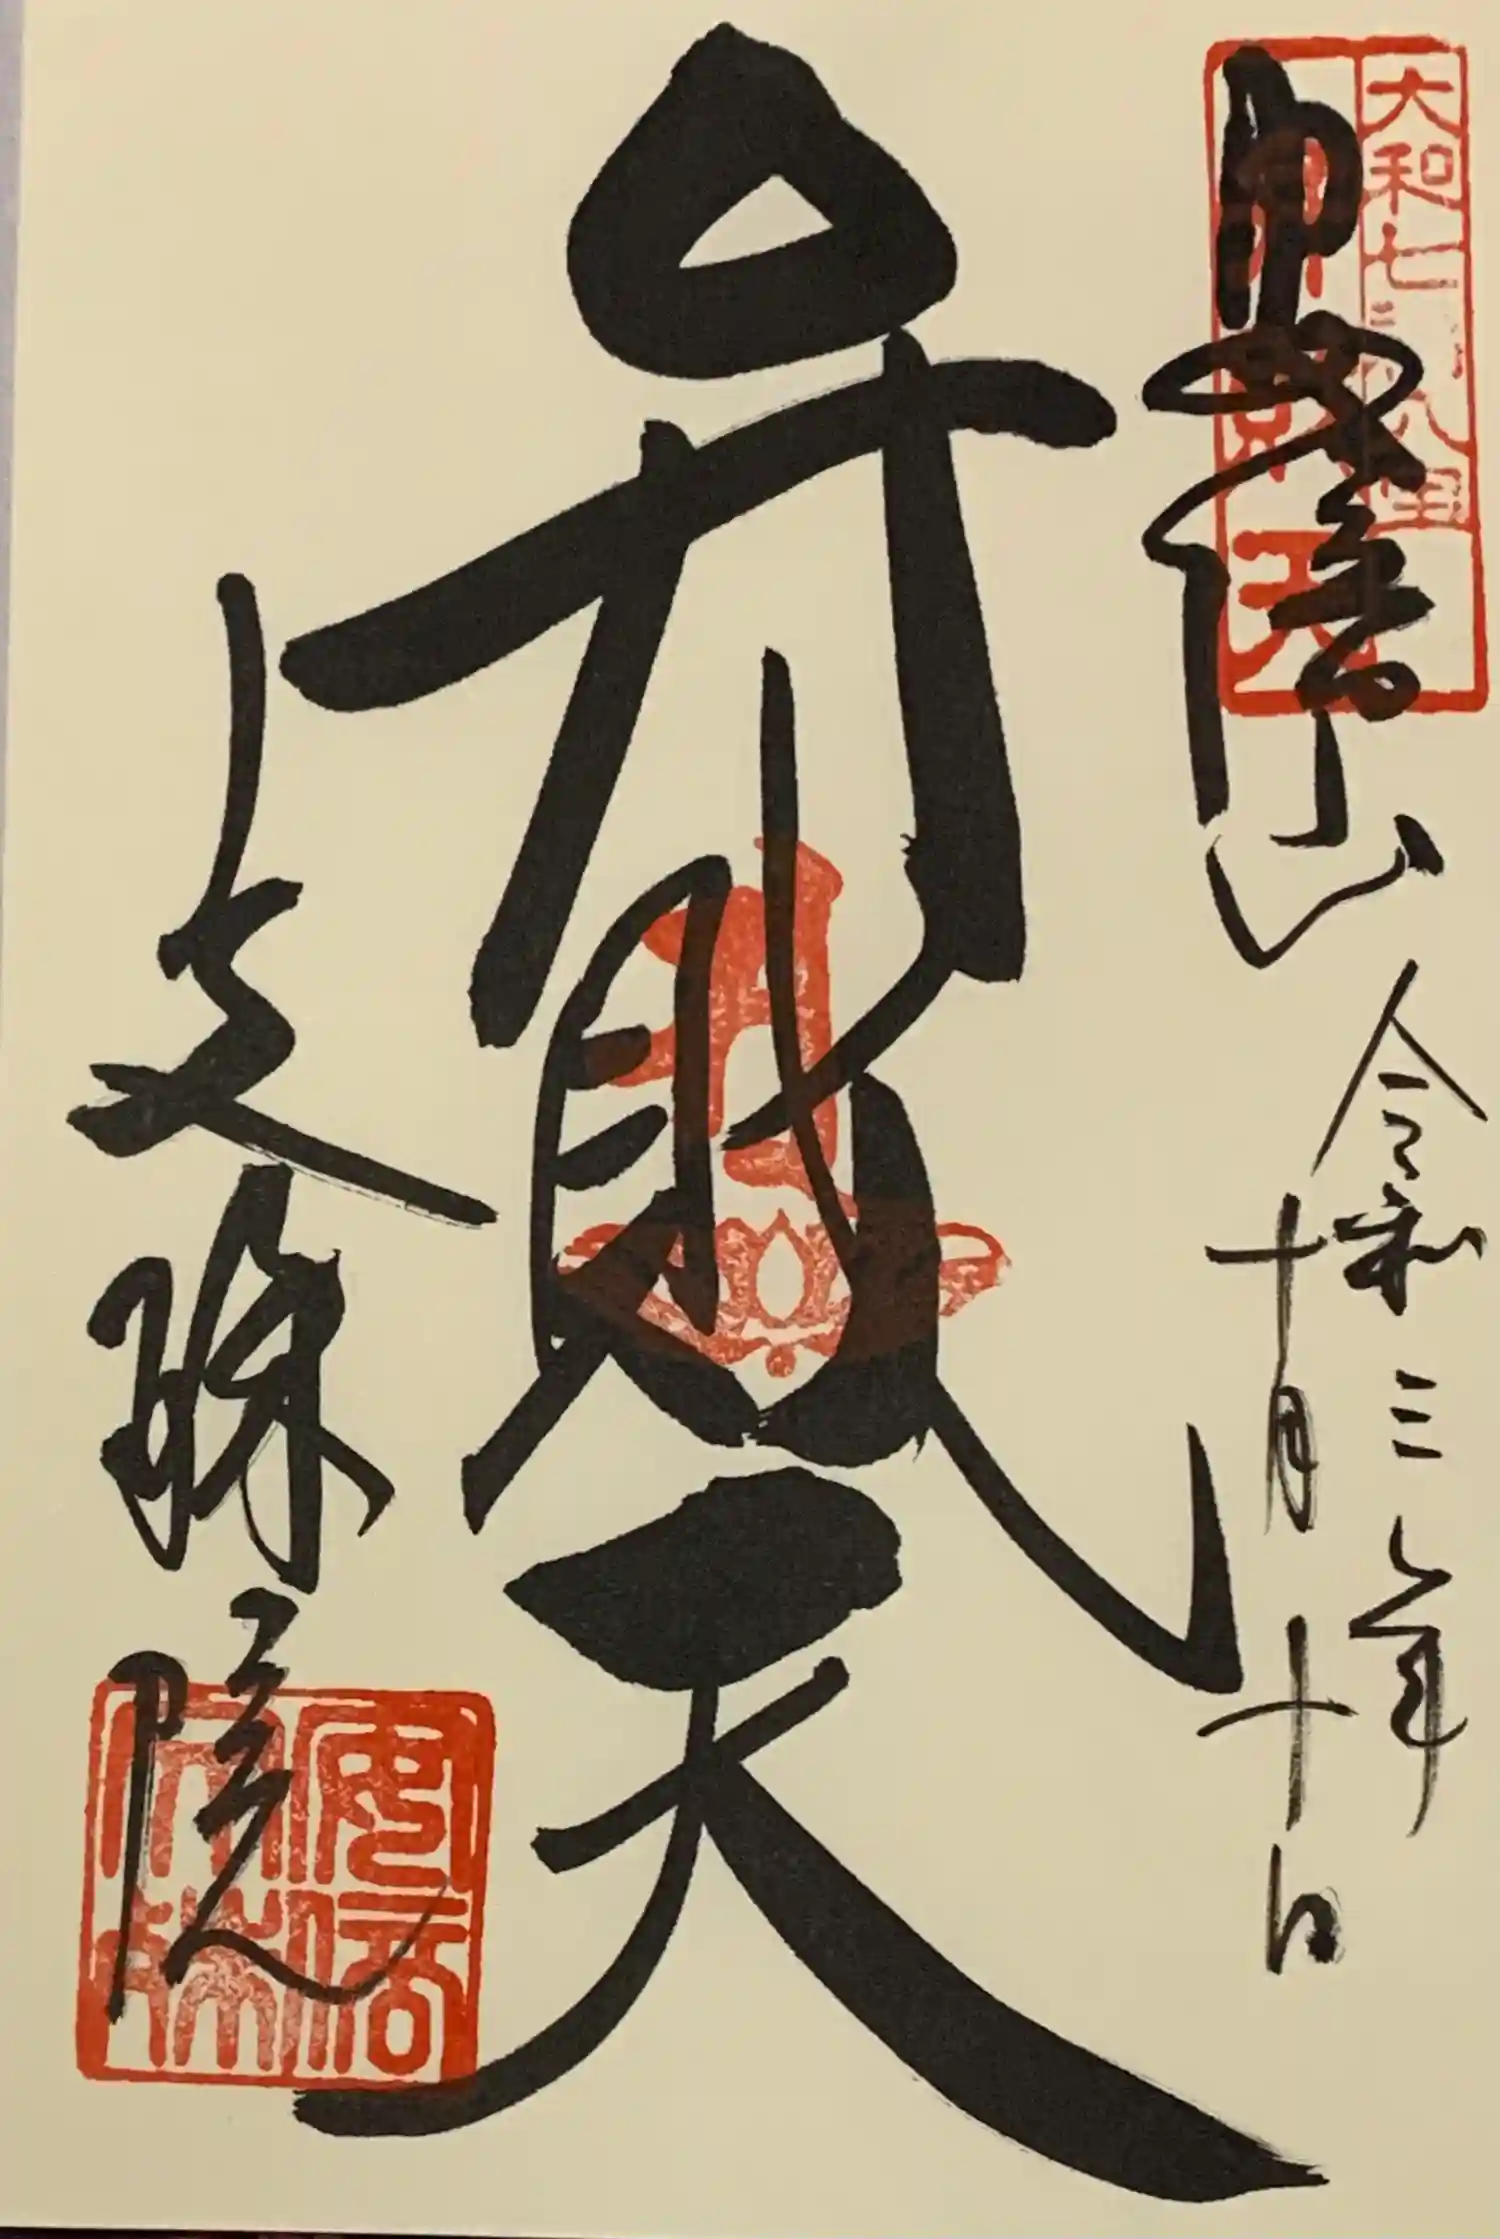 大和七福八宝
安倍山
令和三年
十月十日
弁財天
文殊院
安倍
文殊